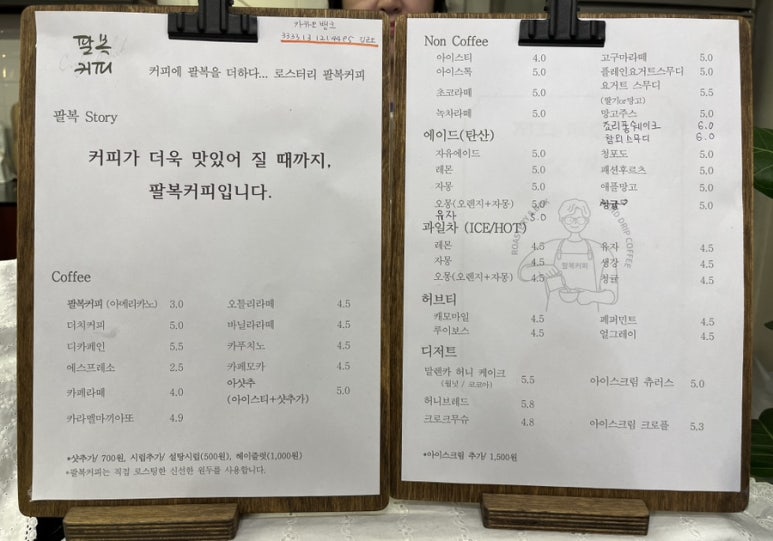 팔복
커피
카카오뱅크
커피에 팔복을 더하다... 로스터리 팔복커피
팔복 Story
커피가 더욱 맛있어 질 때까지,
팔복커피입니다.
Coffee
팔복커피 (아메리카노) 3.0 오틀리라떼 4.5
더치커피 5.0 바닐라라떼 4.5
디카페인 5.5 카푸치노 4.5
에스프레소 2.5 카페모카 4.5
카페라떼 4.0 아샷추 (아이스티+샷추가) 5.0
카라멜마끼아또 4.9
*샷추가/ 700원, 시럽추가/ 설탕시럽(500원), 헤이즐럿(1,000원)
*팔복커피는 직접 로스팅한 신선한 원두를 사용합니다.
Non Coffee
아이스티 4.0 고구마라떼 5.0
아이스쵸 5.0 플레인요거트스무디 5.0
초코라떼 5.0 요거트 스무디 (딸기or망고) 5.5
녹차라떼 5.0 망고주스 5.0
죠리퐁쉐이크 6.0
에이드(탄산) 참외스무디 6.0
자유에이드 5.0 청포도 5.0
레몬 5.0 패션후르츠 5.0
자몽 5.0 애플망고 5.0
오몽(오렌지+자몽) 5.0 청귤♡ 5.0
유자 5.0
과일차 (ICE/HOT)
레몬 4.5 유자 4.5
자몽 4.5 생강 4.5
오몽(오렌지+자몽) 4.5 청귤 4.5
ROAST HAND DRIP COFFEE
팔복커피
허브티
캐모마일 4.5 페퍼민트 4.5
루이보스 4.5 얼그레이 4.5
디저트
말렌카 허니 케이크 5.5 아이스크림 츄러스 5.0
(월넛 / 코코아)
허니브레드 5.8
크로크무슈 4.8 아이스크림 크로플 5.3
*아이스크림 추가/ 1,500원